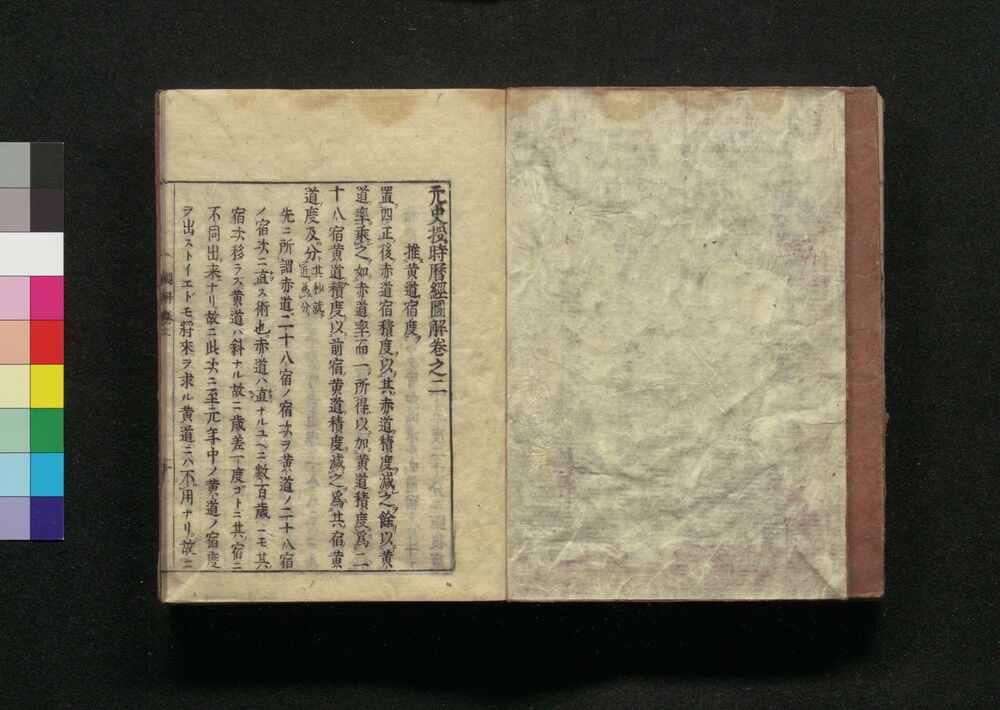 元史授時暦經圖解卷之二
推黄道宿度
置四正後赤道宿積度以其赤道積度減之餘以黄
道率乘之如赤道率而一所得以加黄道積度爲二
十八宿黄道積度以前宿黄道積度減之爲其宿黄
道度及分其秒就近爲分
先ニ所謂赤道二十八宿ノ宿次ヲ黄道ノ二十八宿
ノ宿次ニ直ス術也赤道ハ直ナルユヘニ數百歳ニモ其
宿次移ラズ黄道ハ斜ナル故ニ歳差一度ゴトニ其宿ニ
不同出来ナリ故ニ此次ニ至元年中ノ黄道ノ宿度
ヲ出ストイエドモ將來ヲ求ル黄道ニハ不用ナリ故ニ